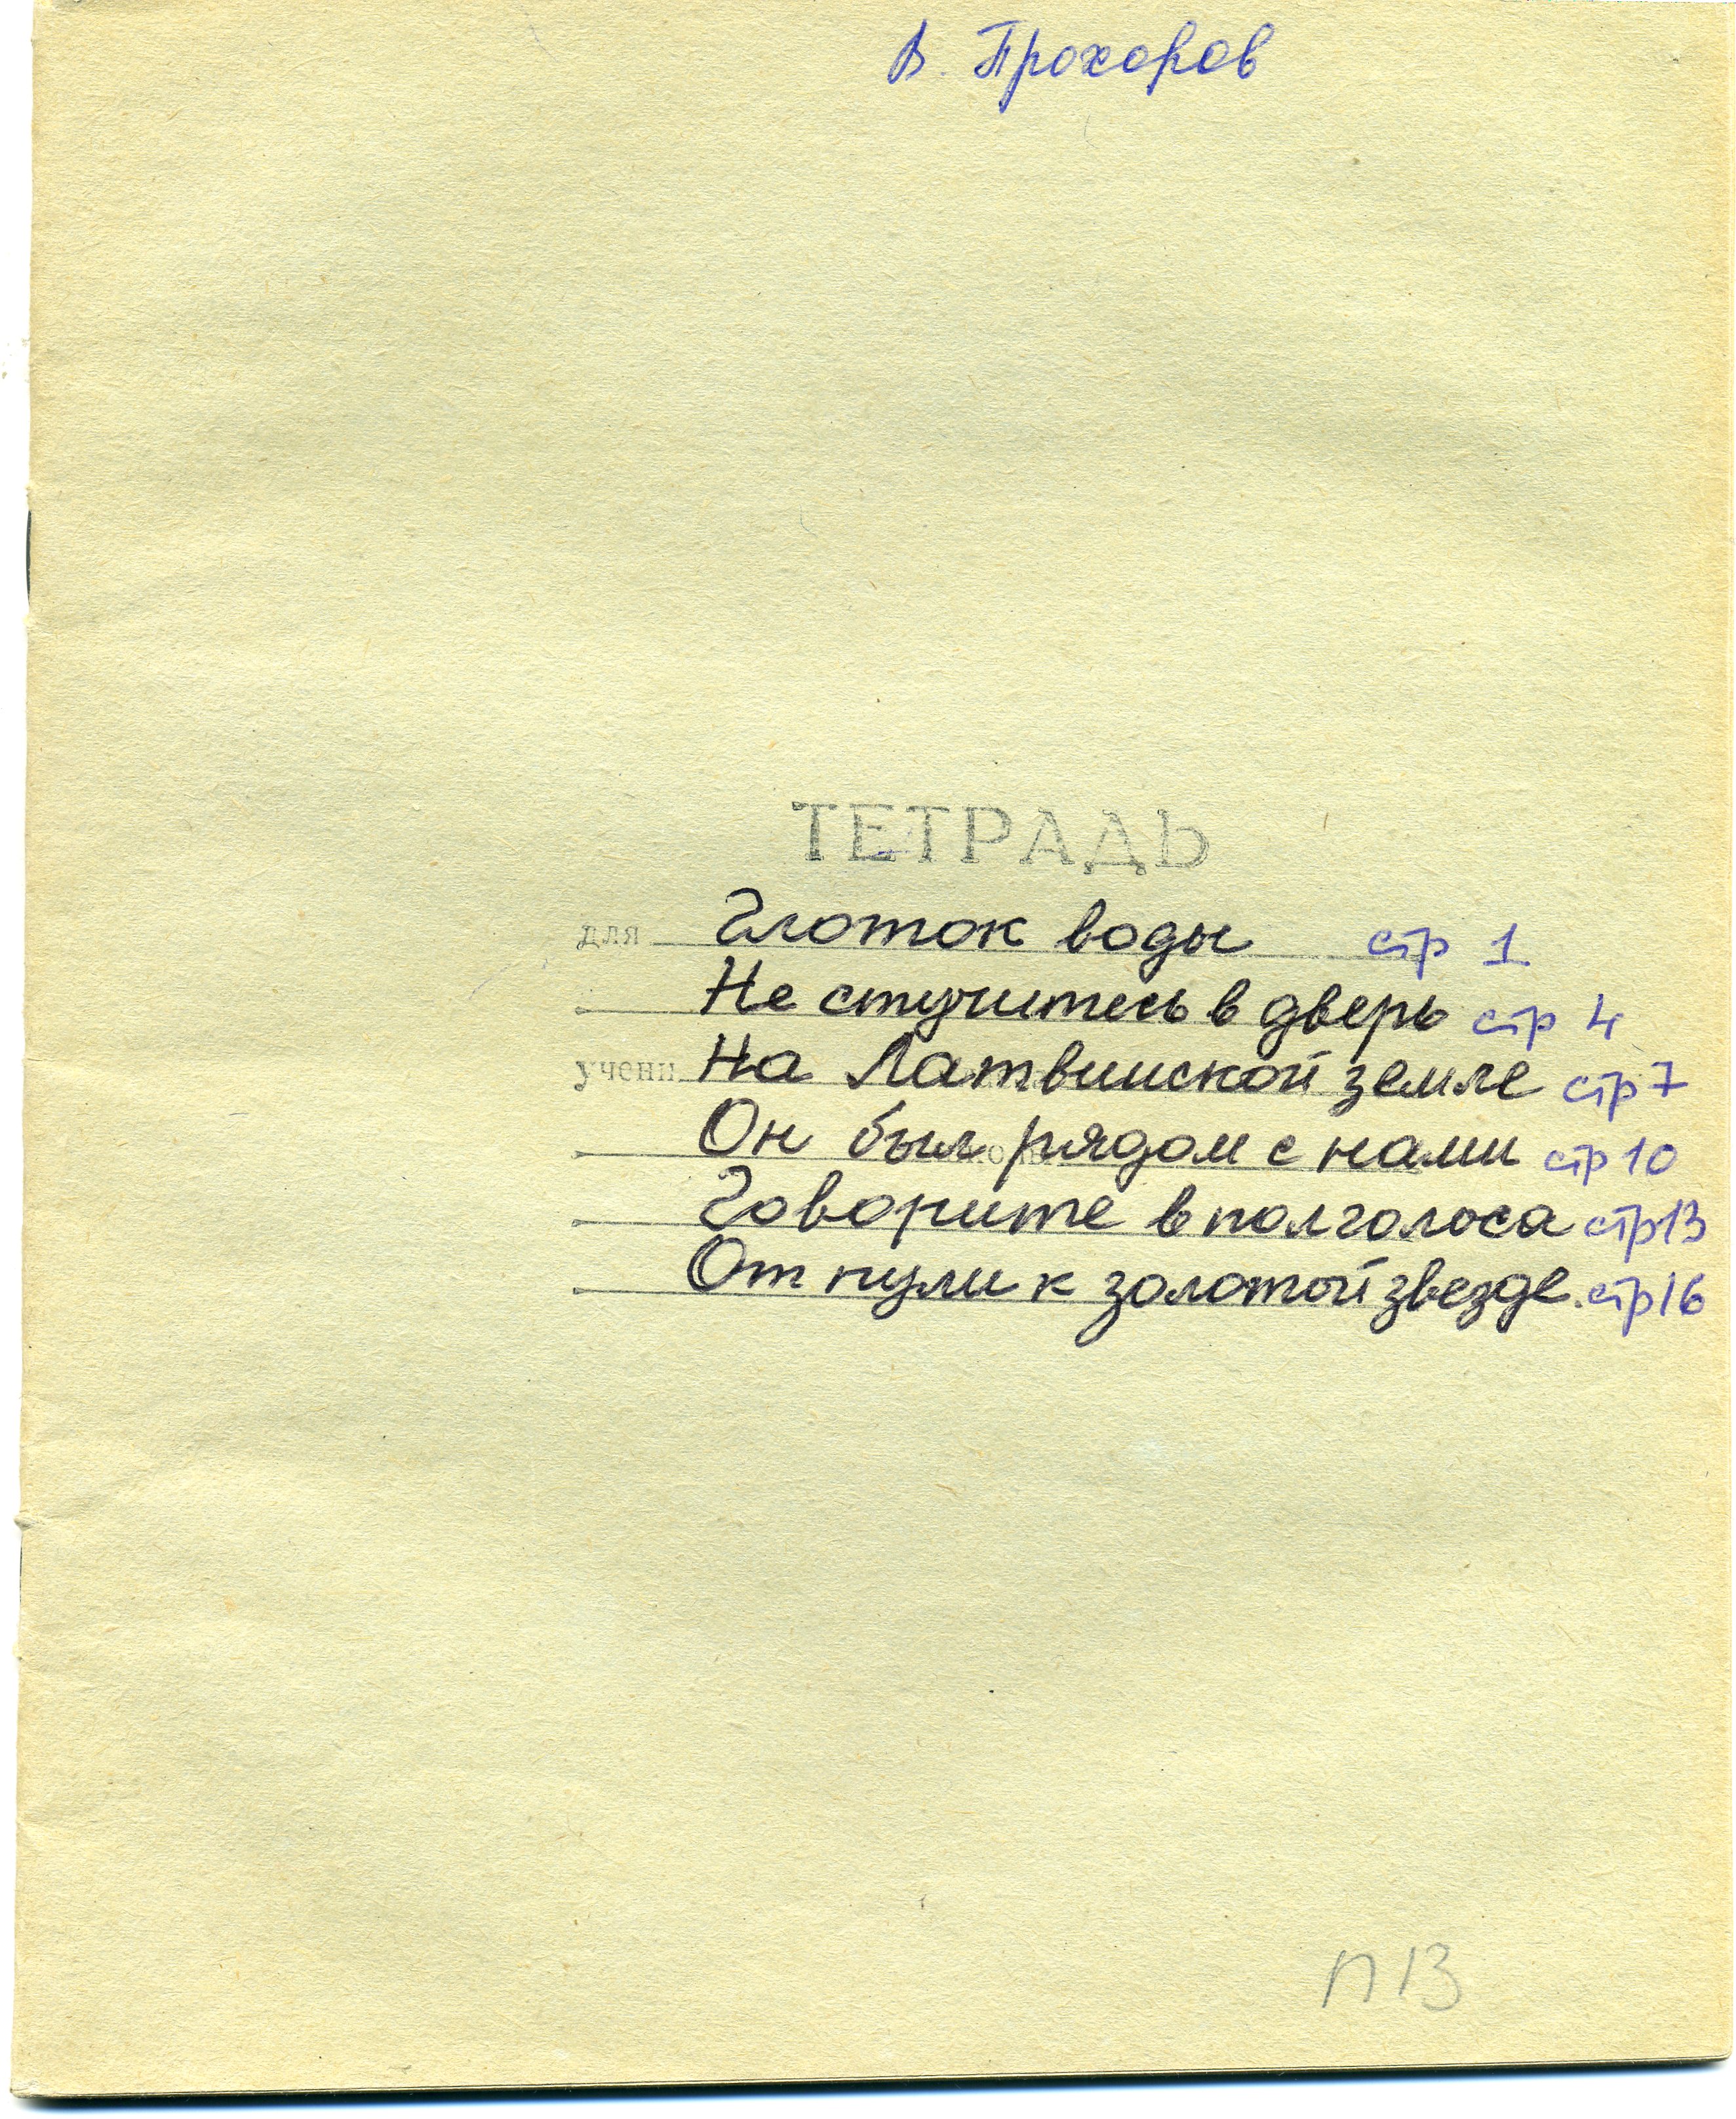 В. Прохоров
ТЕТРАДЬ
для Глоток воды стр 1
Не стучитесь в дверь стр 4
учени На Латвийской земле стр 7
Он был рядом с нами стр 10
Говорите вполголоса стр 13
От пули к золотой звезде. стр 16
П 13